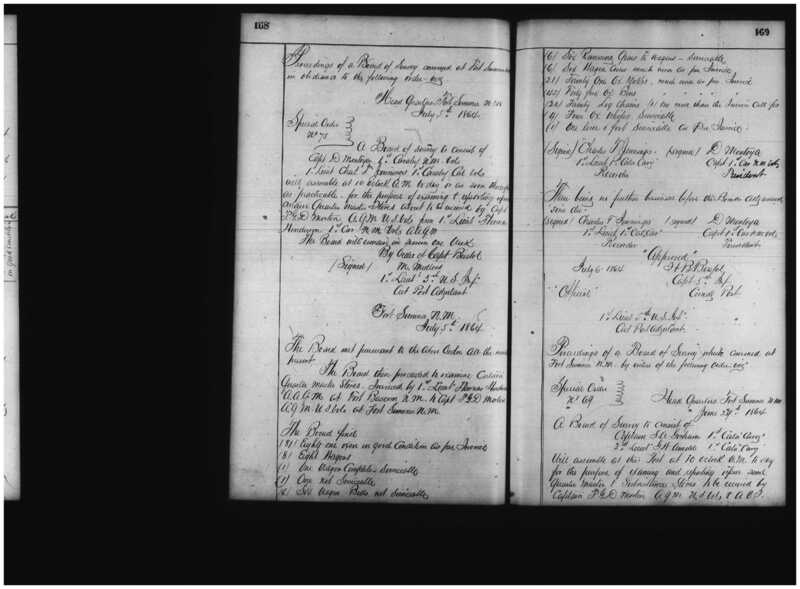 168
Proceedings of a Board of Survey convened at Fort Sumner
in obedience to the following order viz
Head Quarters Fort Sumner N.M.
July 5th 1864
Special Order
No 75
A Board of Survey to consist of
Capt D Montoya 1st Cavalry N.M. Vols
1st Lieut Chas F Jennings 1st Cavalry Cal Vols
will assemble at 10 o'clock A.M. to day or as soon thereafter
as practicable for the purpose of examining & reporting upon
Quarter Master Stores about to be received by Capt
P.E.D. Morton A.Q.M. U.S. Vols from 1st Lieut Thomas
Henderson 1st Cav N.M. Vols A.A.Q.M.
The Board will remain in session one
By Order of Capt Bristol
(Signed)
1st Lieut 5th U.S. Inf
Act Post Adjutant
Fort Sumner, N.M.
July 5th 1864
The Board met pursuant to the above Order all the
present
The Board then proceeded to examine Certain
Quarter Master Stores Invoiced by 1st Lieut Thomas Henderson
A.A.Q.M. at Fort Bascom N.M. to Capt P.E.D. Morton
A.Q.M. U.S. Vols at Fort Sumner N.M.
The Board find
Eighty one oxen in good Condition as per Invoice
(8) Eight Wagons
(1) One Wagon Complete Serviceable
(1) One not Serviceable
(6) Six Wagon Beds not Serviceable
169
(6) Six Running Gears to Wagons - Serviceable
(6) Six Wagon Covers much worn as per Invoice
(21) Twenty One Ox Yokes, much worn as per Invoice
(42) Forty two Ox Bows " " " "
(22) Twenty Log Chains (2) two more than the Invoice Calls for
(4) Four Ox Serviceable
(1) One Serviceable as per Invoice
(Signed) Charles F Jennings (signed) D Montoya
1st Lieut 1st Cala Cavy Capt 1st Cav N.M. Vols
Recorder President
There being no further business before the Board adjourned
sine die
(signed) Charles F Jennings (signed) D Montoya
1st Lieut 1st Cal Cav Capt 1st Cav N.M. Vols
Recorder President
"Approved"
July 6 1864 H B Bristol
Capt 5th Inf
"Official" Comdg Post
1st Lieut 5th U.S. Inf
Act Post Adjutant
Proceedings of a Board of Survey which convened at
Fort Sumner N.M. by virtue of the following order viz
Special Order
No 69 Head Quarters Fort Sumner N.M.
June 27th 1864
A Board of Survey to consist of
Captain Gorham 1st Cala Cavy
2nd Lieut 1st Cala Cavy
Will assemble at this Post at 10 o'clock A.M. to day
for the purpose of examining and reporting upon some
Quarter Master & Subsistence Stores to be received by
Captain P.E.D. Morton A.Q.M. U.S. Vols & A.C.S.